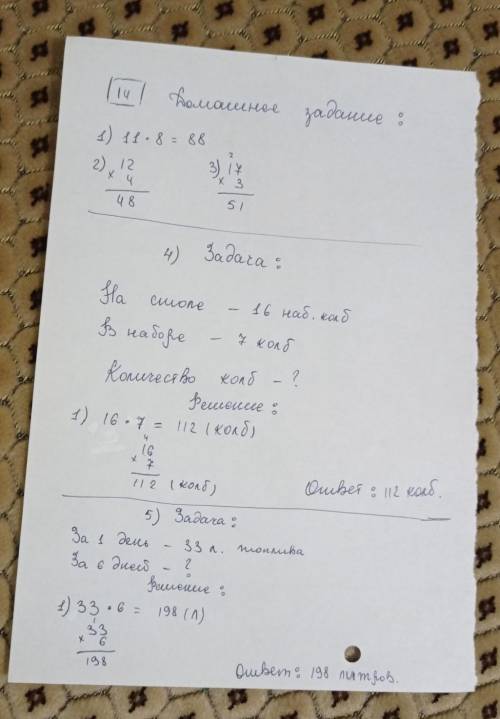 14 Домашнее задание:
1) 11 · 8 = 88
2) 12
× 4
48
3) 2
17
× 3
51
4) Задача:
На столе – 16 наб. колб
В наборе – 7 колб
Количество колб – ?
Решение:
1) 16 · 7 = 112 (колб)
4
16
× 7
112 (колб)
Ответ: 112 колб.
5) Задача:
За 1 день – 33 л. топлива
За 6 дней – ?
Решение:
1) 33 · 6 = 198 (л)
1
33
× 6
198
Ответ: 198 литров.